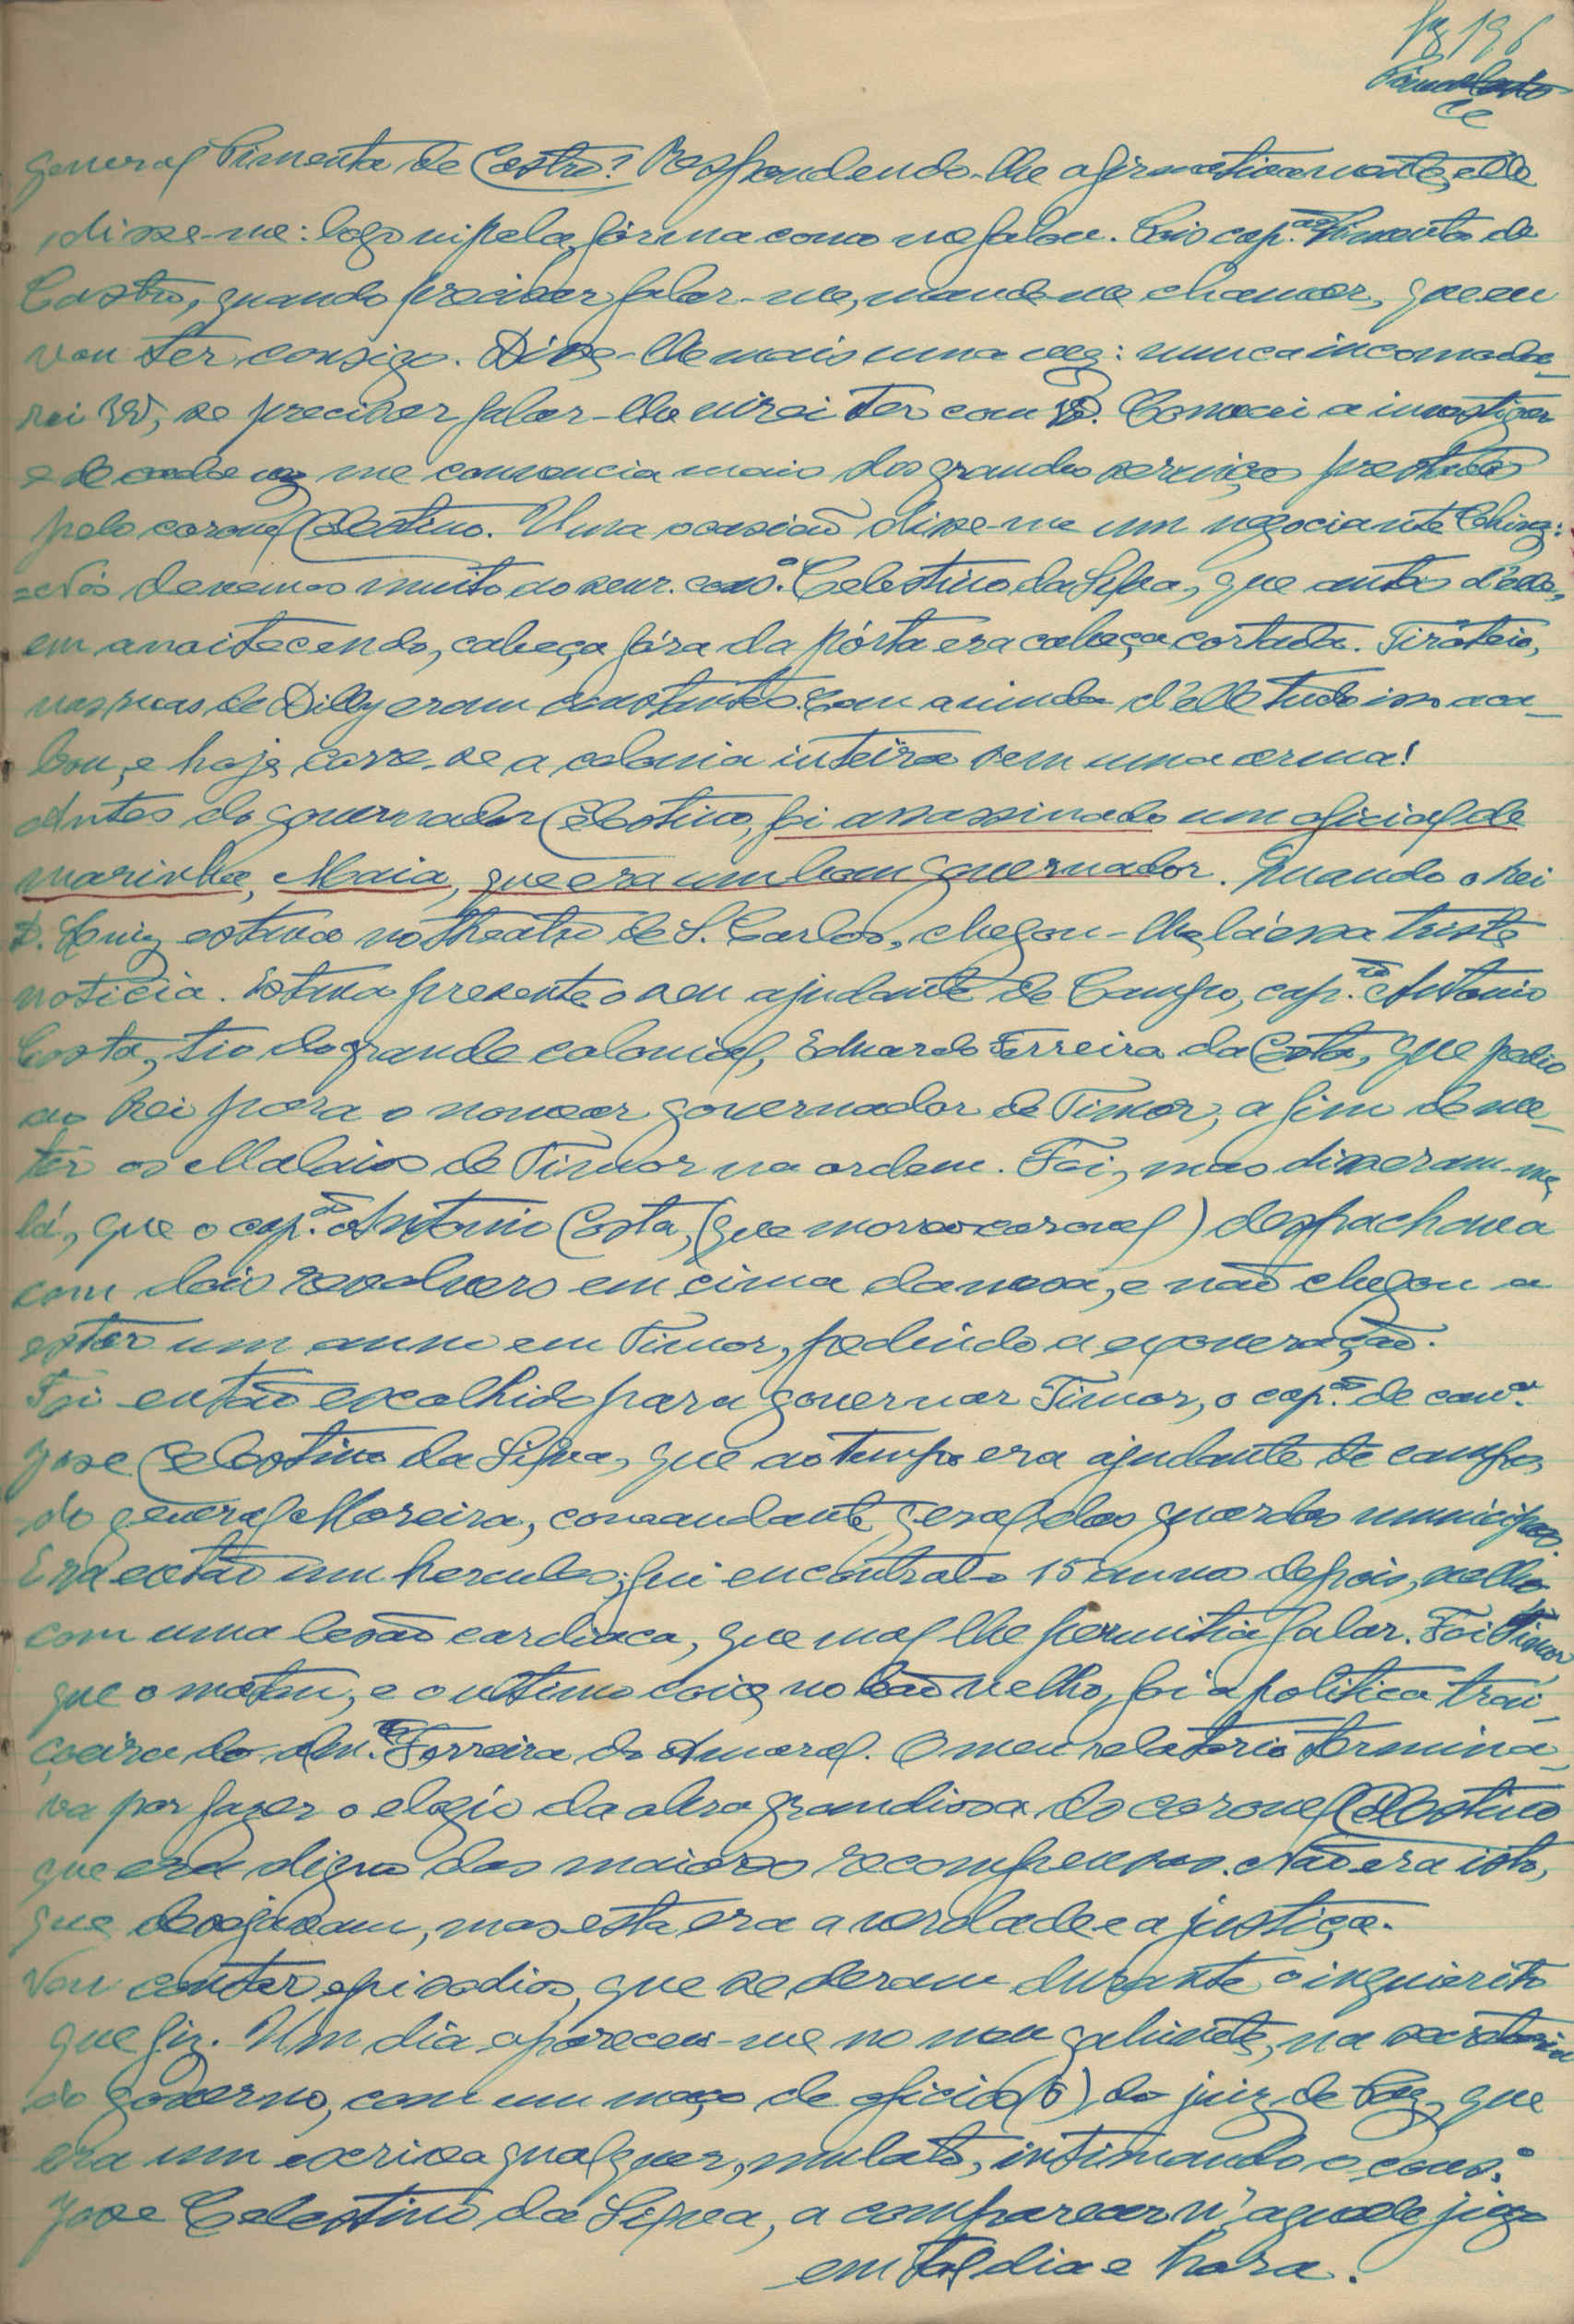 fg 196
general Pimenta de Castro? Respondendo-lhe afirmativamente, elle
disse-me: logo vi pela fórma como me falou. Pois cap.ão Pimenta de
Castro, quando precisar falar-me, mande-me chamar, que eu
vou ter consigo. Disse-lhe mais uma vez: nunca incomoda-
rei V., se precisar falar-lhe virei ter com V. Comecei a investigar
e de cada vez me convencia mais dos grandes serviços prestados
pelo coronel Celestino. Uma ocasião disse-me um negociante China:
=Nós devemos muito ao senr. cons.º Celestino da Silva, que antes d'elle,
em anoitecendo, cabeça fóra da pórta era cabeça cortada. Tiroteio,
nas ruas de Dilly eram constantes. Com a vinda d'elle tudo isso aca-
bou, e hoje corre-se a colonia inteira sem uma arma!
Antes do governador Celestino, foi assassinado um oficial de
marinha, Maia, que era um bom governador. Quando o Rei
D. Luiz estava no theatro de S. Carlos, chegou-lhe lá essa triste
noticia. Estava presente o seu ajudante de Campo, cap.ão Antonio
Costa, tio do grande colonial, Eduardo Ferreira da Costa, que pedio
ao Rei para o nomear governador de Timor, a fim de me-
ter os Malaios de Timor na ordem. Foi, mas disseram-me
lá, que o cap.ão Antonio Costa, (que morreo coronel) despachava
com dois revolvers em cima da mesa, e não chegou a
estar um anno em Timor, pedindo a exoneração.
Foi então escolhido para governar Timor, o cap.ão de cav.ª
Jose Celestino da Silva, que ao tempo era ajudante de campo,
do general Moreira, comandante geral das guardas municipaes.
Era então um hercules; fui encontral-o 15 annos depois, velho
com uma lesão cardiaca, que mal lhe permitia falar. Foi Timor
que o matou, e o ultimo coice no leão velho, foi a politica trai-
çoeira do Alm.te Ferreira do Amaral. O meu relatorio termina-
va por fazer o elogio da obra grandiosa do coronel Celestino
que era digno das maiores recompensas. Não era isto,
que desejavam, mas esta era a verdade e a justiça.
Vou contar episodios, que se deram durante o inquierito
que fiz. Um dia apareceu-me no meu gabinete, na secretaria
do governo, com um maço de oficio(s) do juiz de Paz, que
era um escriba qualquer, mulato, intimando o cons.º
Jose Celestino da Silva, a comparecer n'aquele juizo
em tal dia e hora.